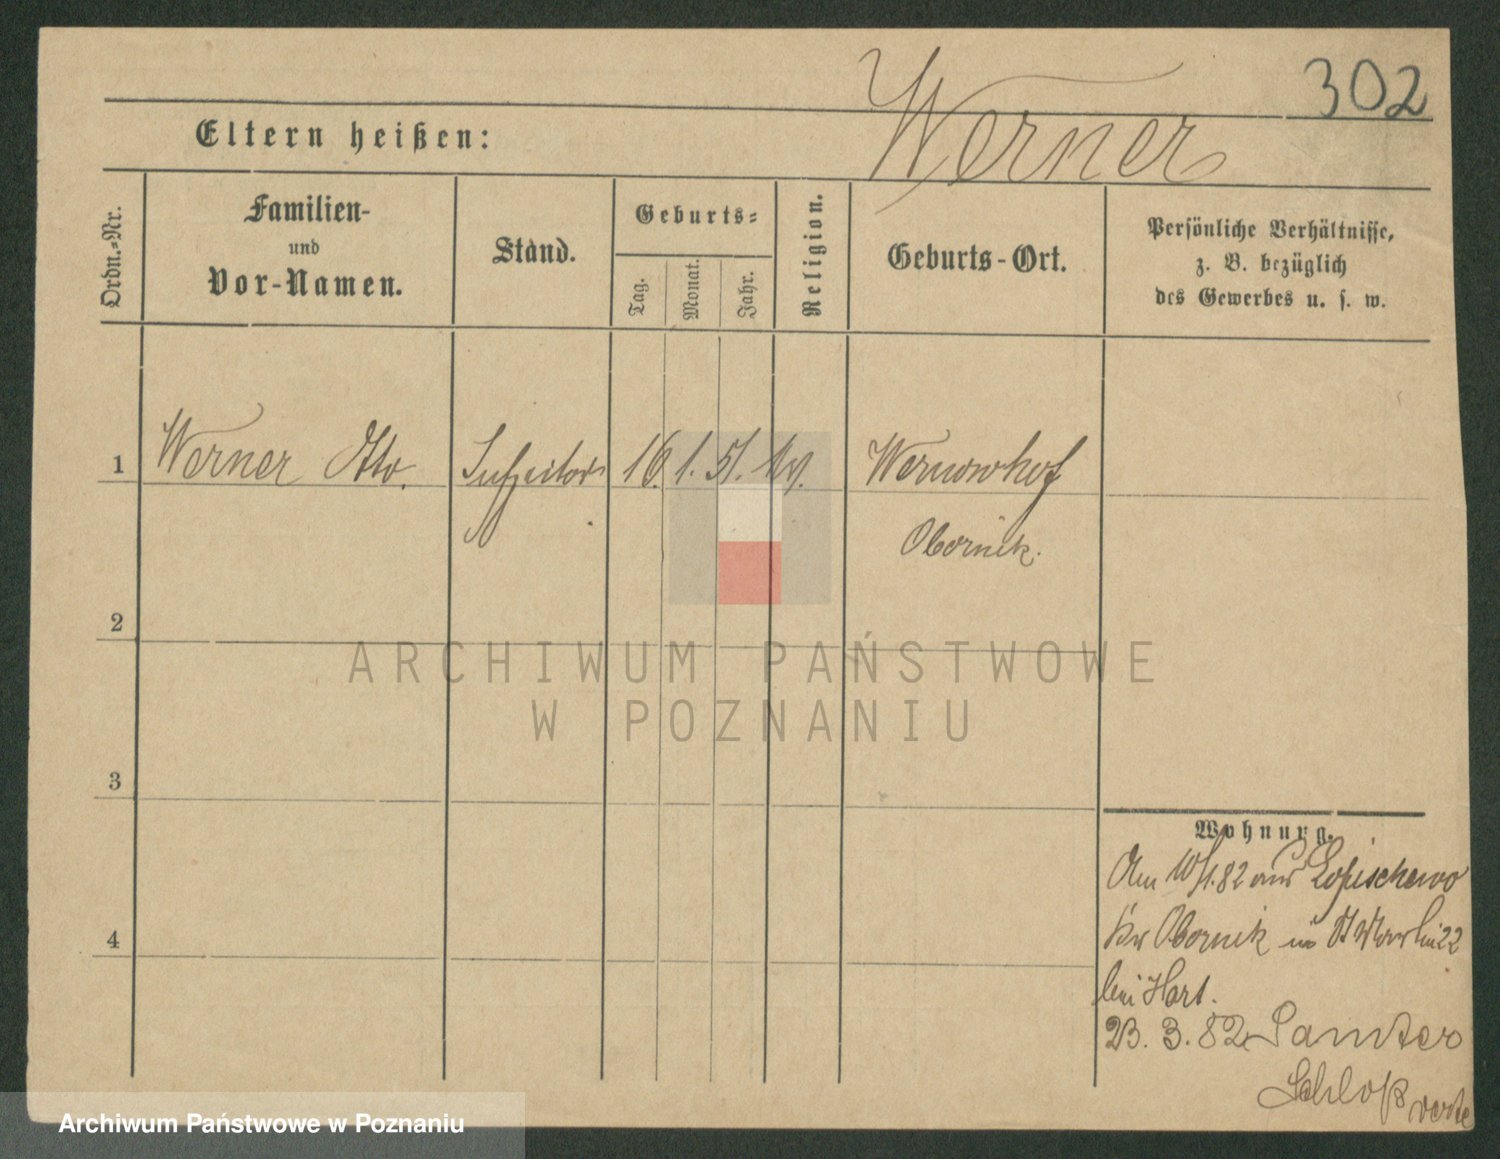 302
Werner
Eltern heißen:
Ordn.-Nr.
Familien-
und
Vor-Namen.
Stand.
Geburts-
Tag.
Monat.
Jahr.
Religion.
Geburts-Ort.
Persönliche Verhältnisse,
z. B. bezüglich
des Gewerbes u. s. w.
1 Werner Otto. 16. 1. 51. Wernowhof
Obornik.
2
3
4
ARCHIWUM PAŃSTWOWE
W POZNANIU
Wohnung.
Am 10/1.82 aus Lopischewo
Kr Obornik in 22
bei Hart.
23. 3. 82 Samter
Schloß
Archiwum Państwowe w Poznaniu